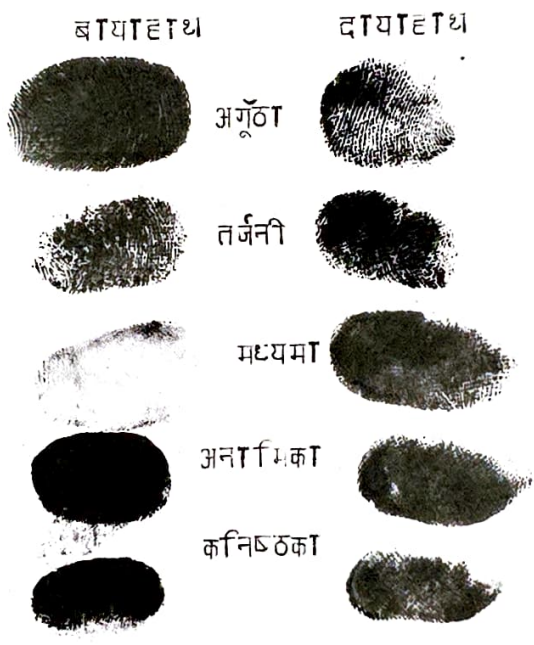 बायाहाथ दायाहाथ
अगूँठा
तर्जनी
मध्यमा
अनामिका
कनिष्ठका